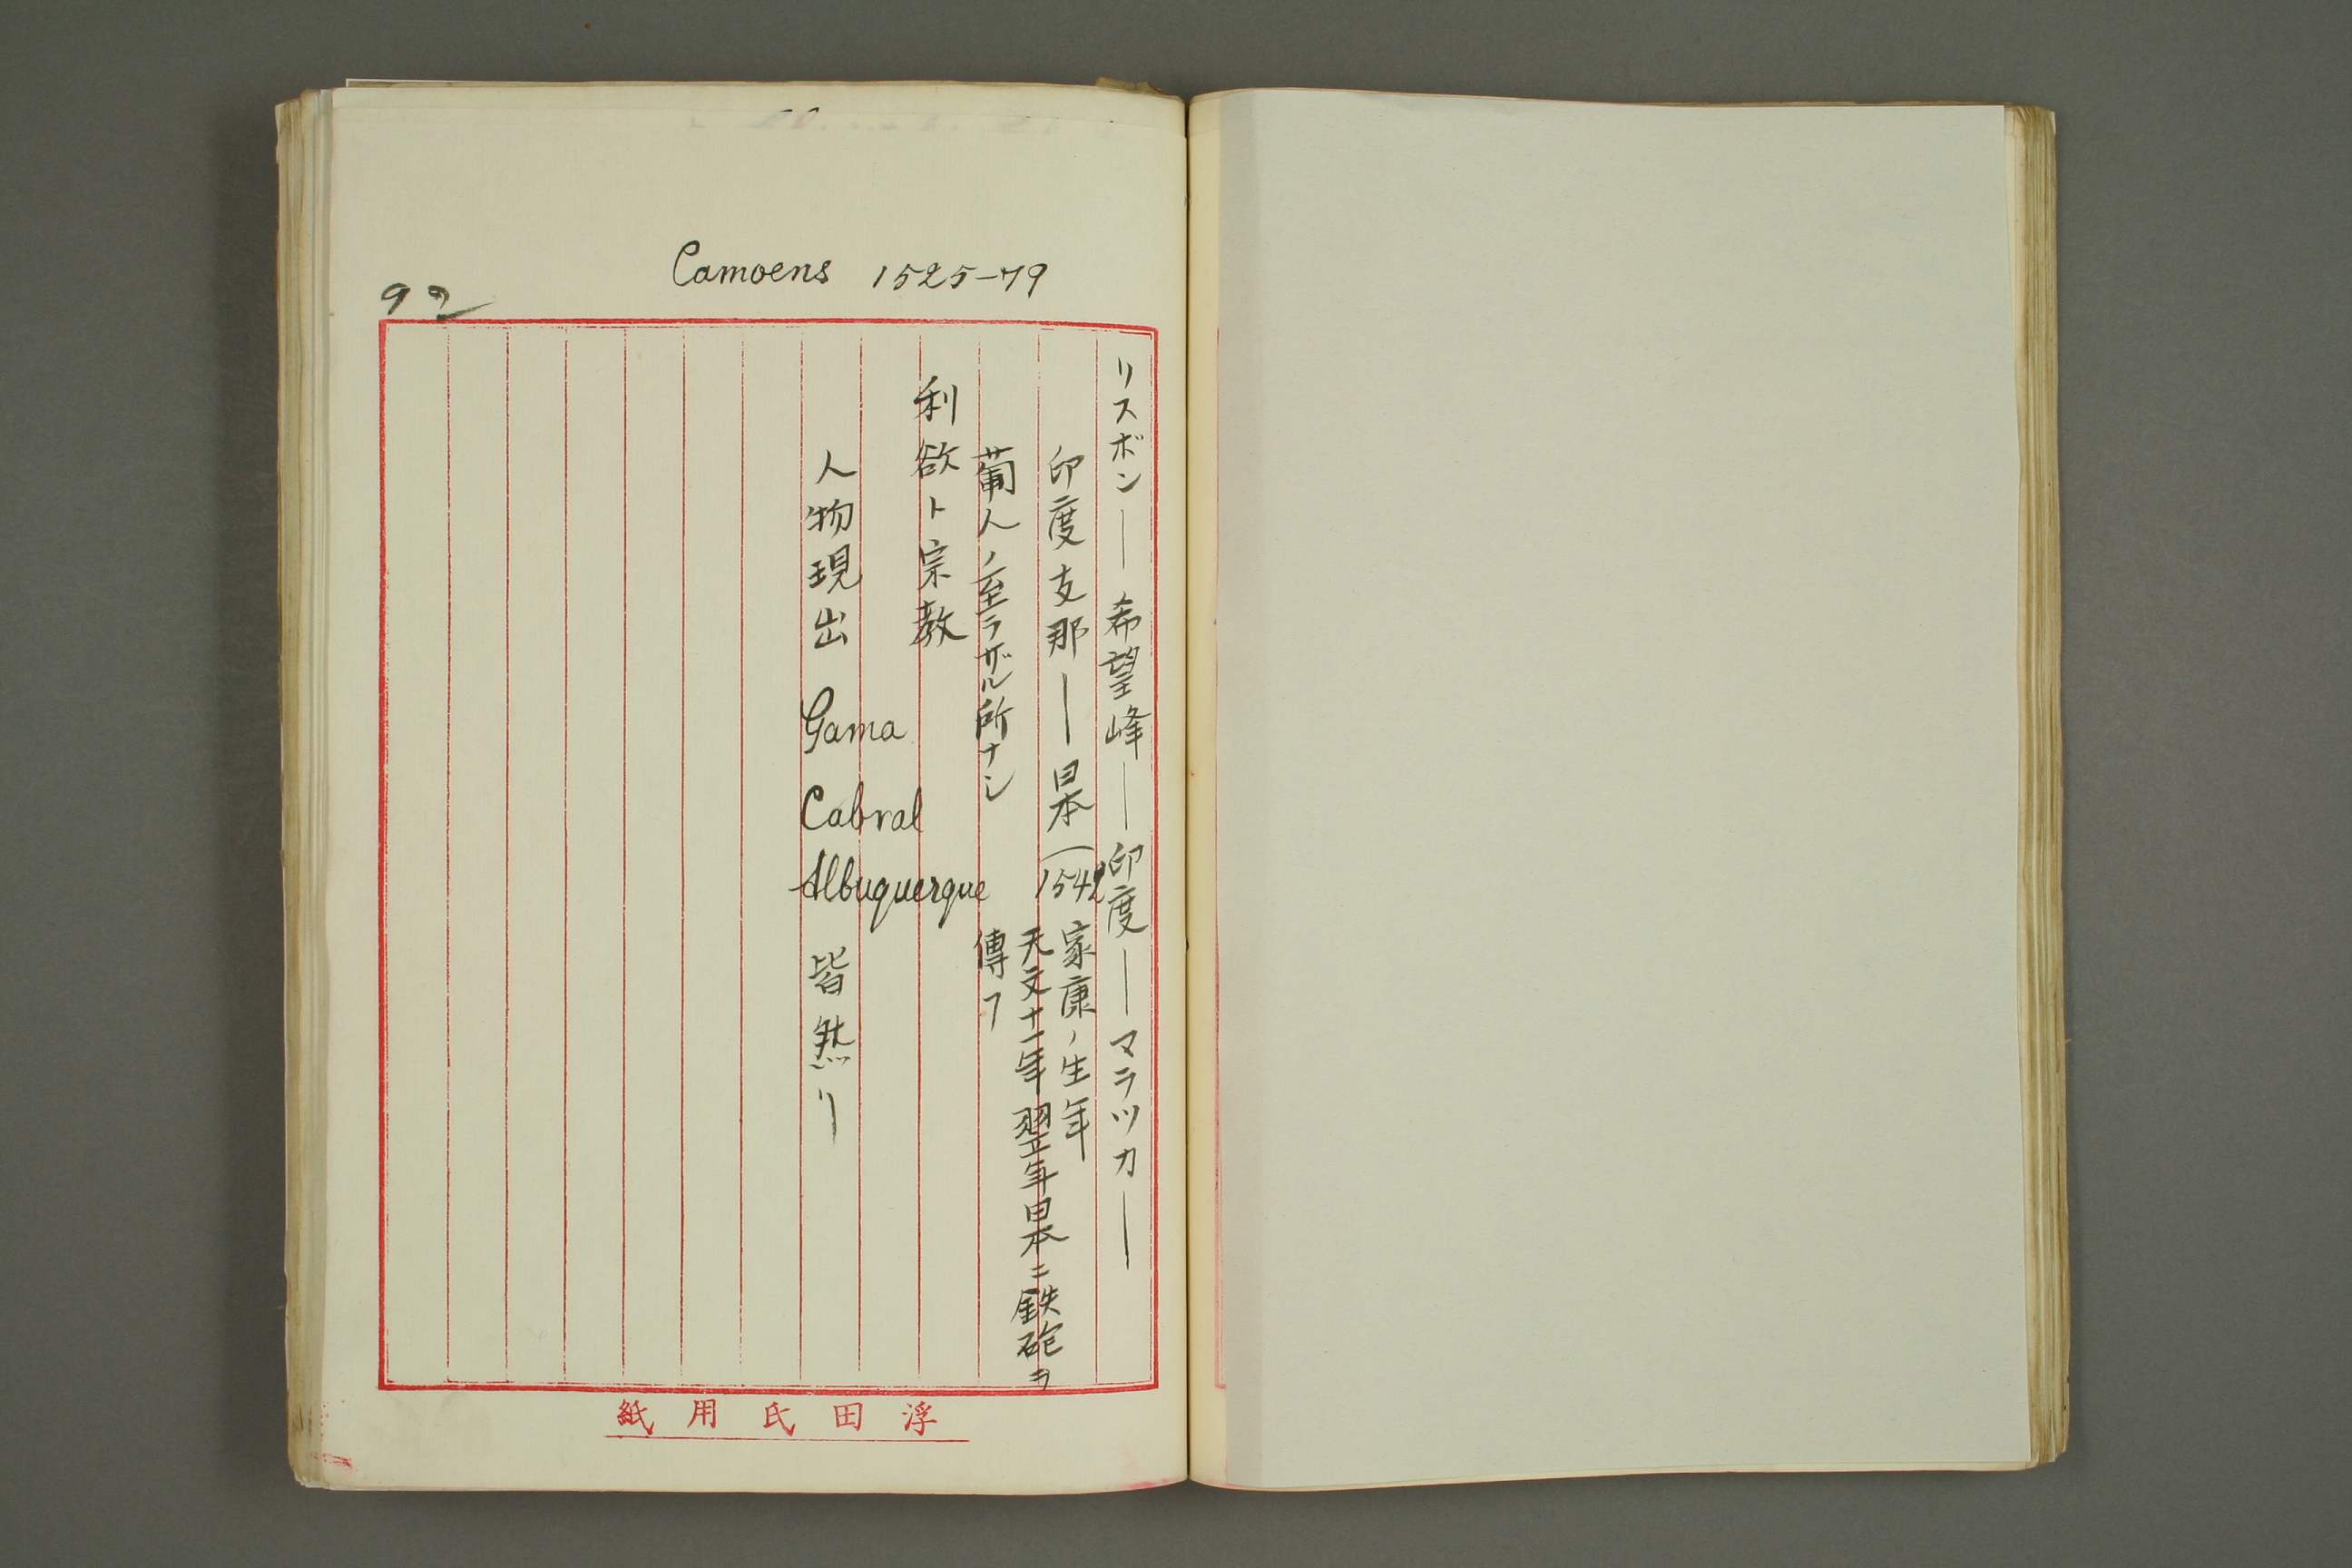 Camoens 1525-79
92
リスボン―希望峰―印度―マラツカ―
印度支那―日本(1542 家康ノ生年
天文十一年翌年日本ニ鉄砲ヲ
傳フ
葡人ノ至ラザル所ナシ
利欲ト宗教
人物現出 Gama
Cabral
Albuquerque
皆然リ
浮田氏用紙